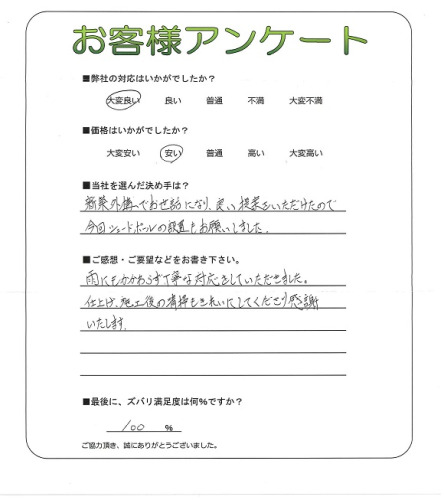 お客様アンケート
■弊社の対応はいかがでしたか？
大変良い 良い 普通 不満 大変不満
■価格はいかがでしたか？
大変安い 安い 普通 高い 大変高い
■当社を選んだ決め手は？
新築外構でお世話になり、良い提案をいただけたので
今回シェードポールの設置もお願いしました。
■ご感想・ご要望などをお書き下さい。
雨にもかかわらず丁寧な対応をしていただきました。
仕上げ、施工後の清掃もきれいにしてくださり感謝
いたします。
■最後に、ズバリ満足度は何%ですか？
100 %
ご協力頂き、誠にありがとうございました。